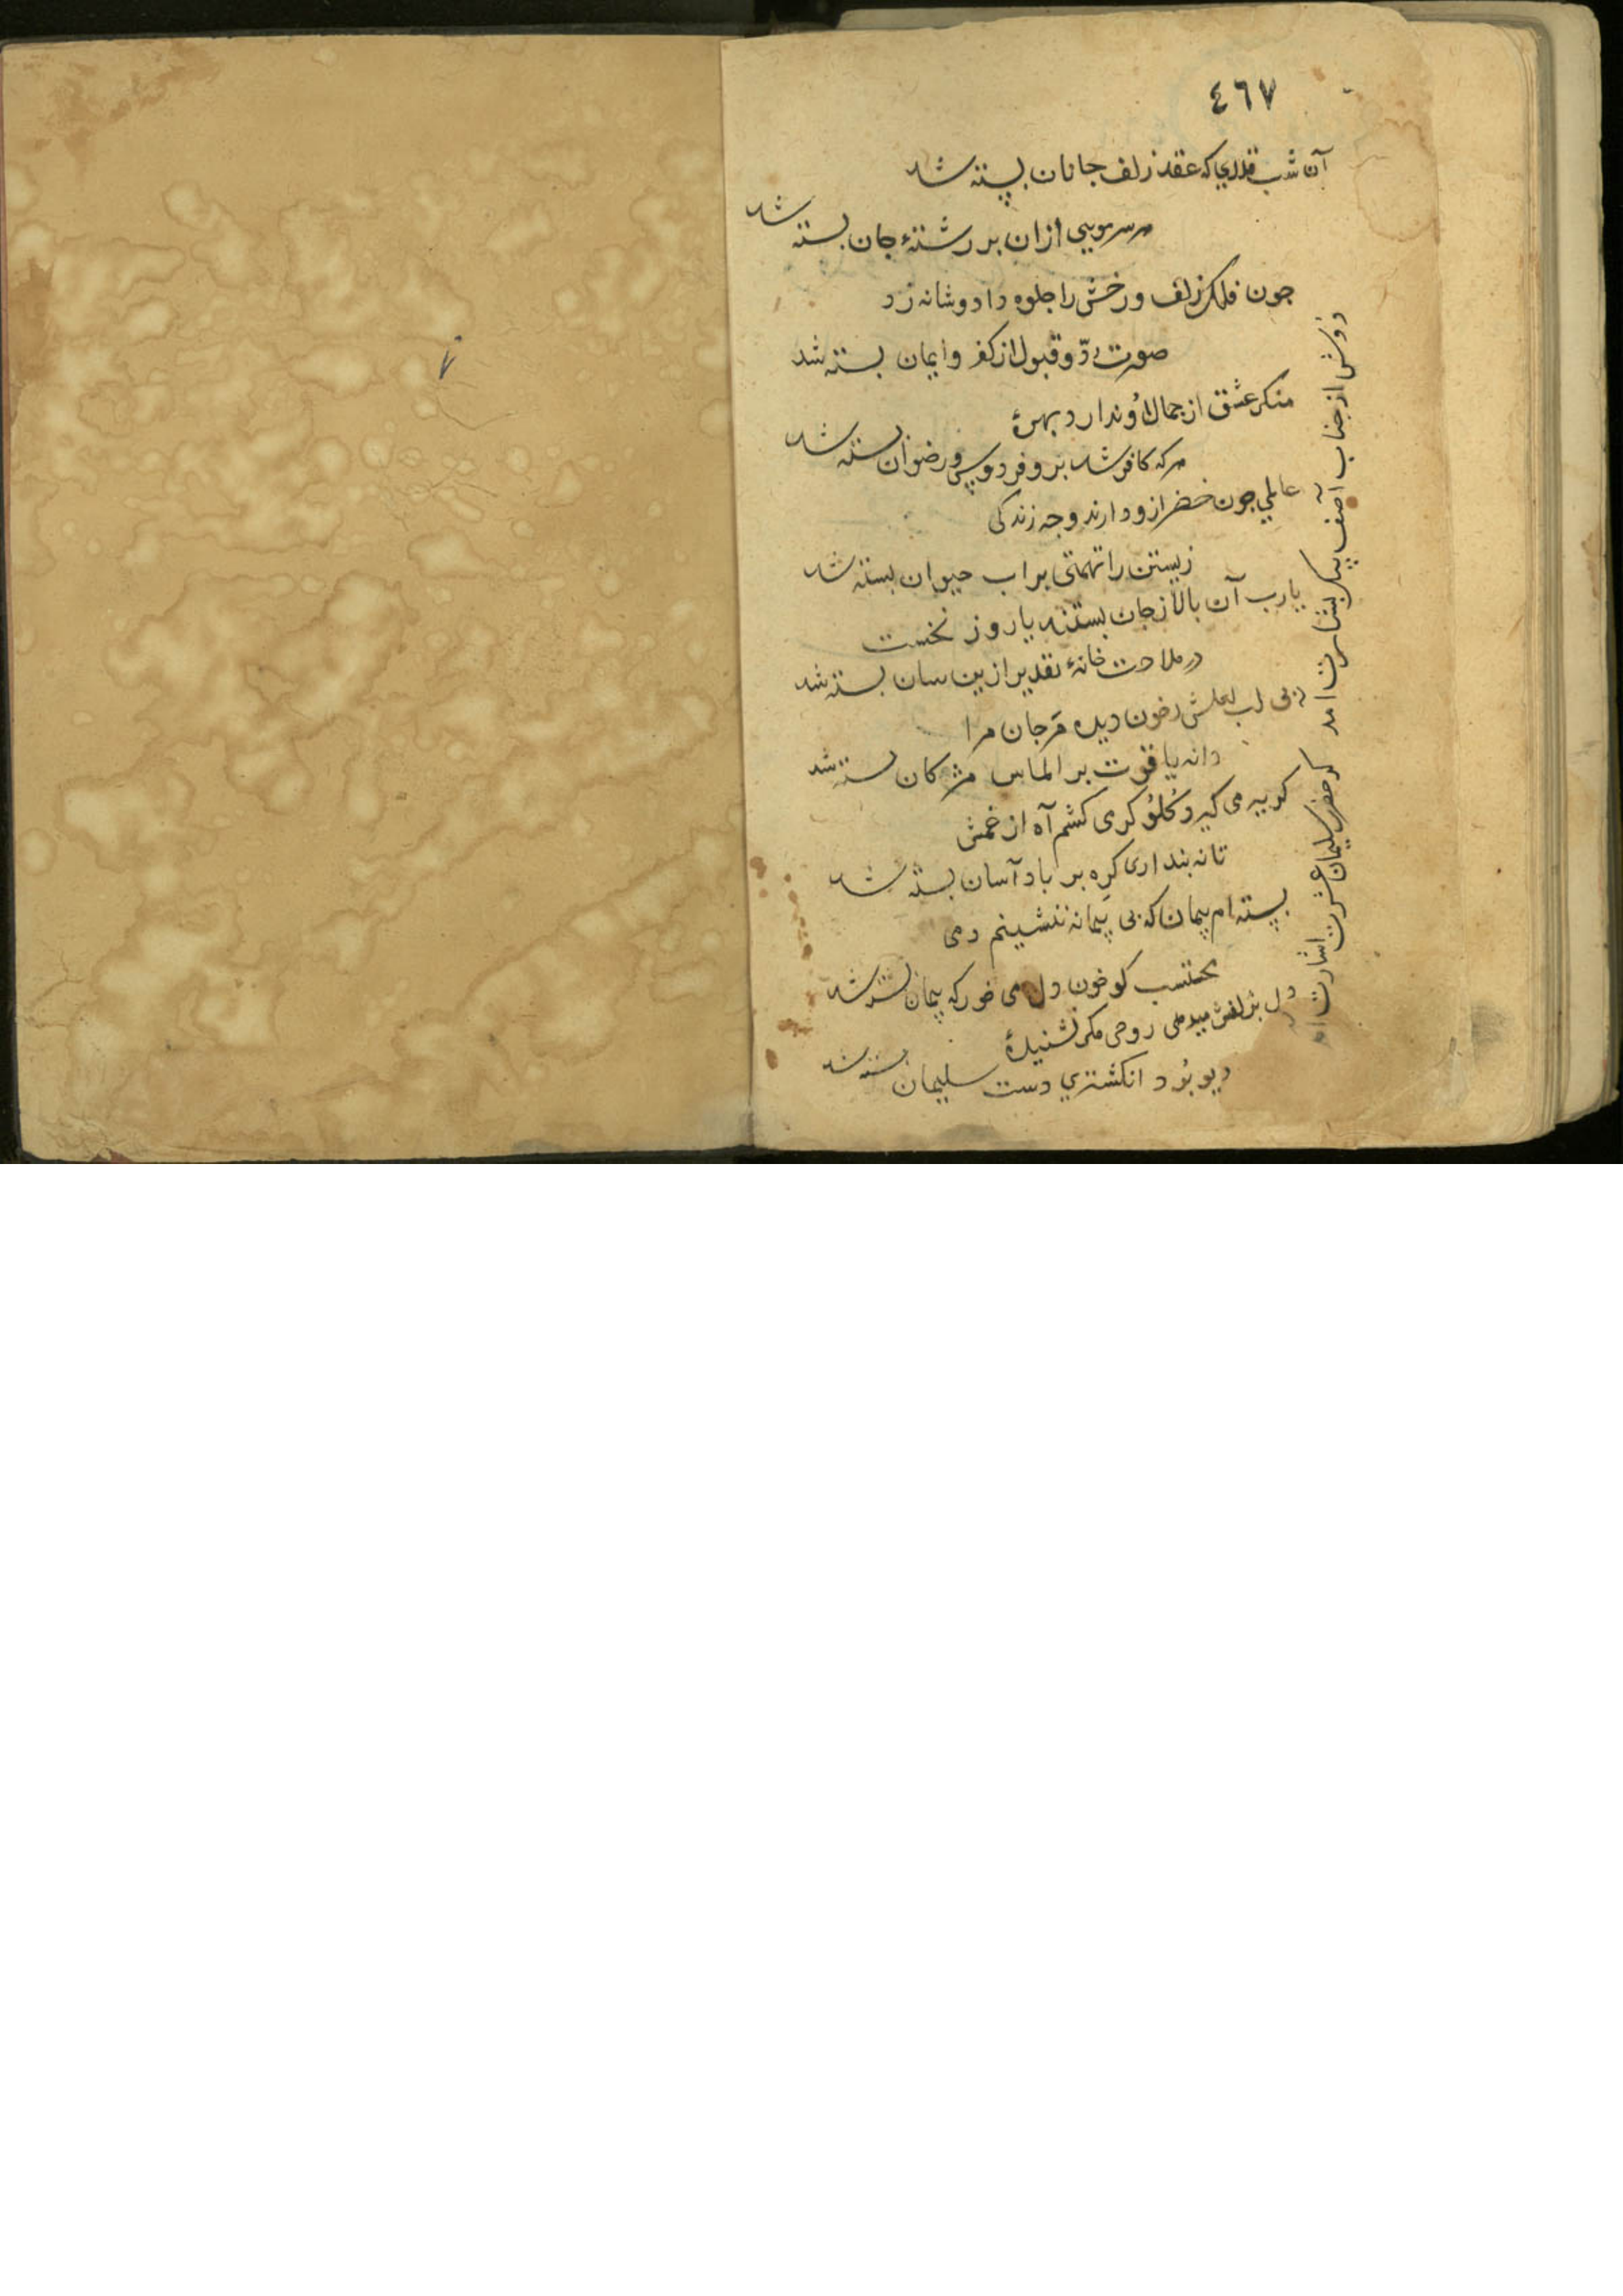 ٤٦٧
آن شب قدری که عقد زلف جانان بسته شد
هر سر مویی ازان بر رشتهٔ جان بسته شد
جون فلک زلف و رخش را جلوه داد و شانه زد
صورت ردّ و قبول از کفر و ایمان بسته شد
منکر عشق از جمال اُو ندارد بهرهٔ
هر که کافر شد برو فردوس و رضوان بسته شد
عالمی جون خضر ازو دارند وجه زندکی
زیستن را تهمتی بر اب حیوان بسته شد
یارب آن بالا ز جان بستند یا روز نخست
در ملاحت خانهٔ تقدیر ازین سان بسته شد
بی لب لعلش ز خون دیده مَرجان مرا
دانه یاقوت بر الماس مژکان بسته شد
کریه می کیرد کلو کر می کشم آه از غمش
تا نه بنداری کره بر باد آسان بسته شد
بسته ام پیمان که بی پیمانه ننشینم دمی
محتسب کو خون دل می خور که پیمان بسته شد
دل بزلفش میدهی روحی مکر نشنیدهٔ
دیو بُود انکشتری دست سلیمان بسته شد
دوش از جناب آصف پیک بشارت امد
کز حضرت سلیمان عشرت اشارت امد